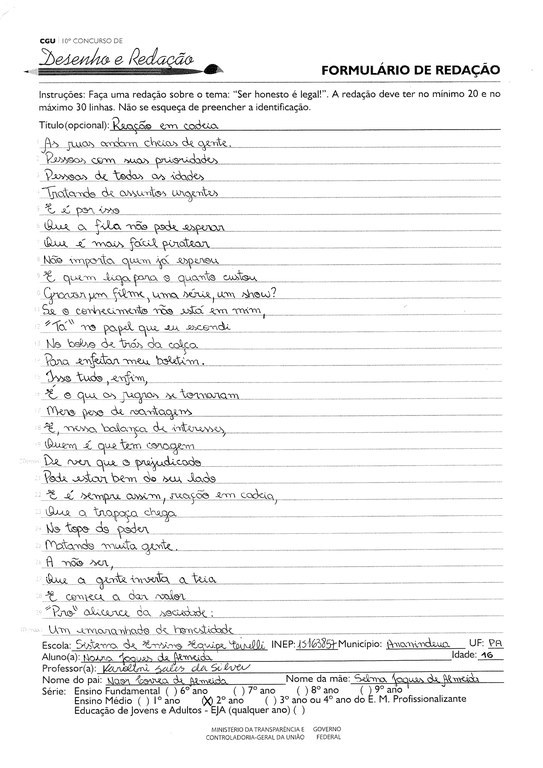 CGU 10º CONCURSO DE
Desenho e Redação
FORMULÁRIO DE REDAÇÃO
Instruções: Faça uma redação sobre o tema: "Ser honesto é legal!". A redação deve ter no mínimo 20 e no
máximo 30 linhas. Não se esqueça de preencher a identificação.
Título(opcional): Reação em cadeia
As ruas andam cheias de gente.
Pessoas com suas prioridades
Pessoas de todas as idades
Tratando de assuntos urgentes
E é por isso
Que a fila não pode esperar
Que é mais fácil piratear
Não importa quem já esperou
E quem liga para o quanto custou
Gravar um filme, uma série, um show?
Se o conhecimento não está em mim,
"Tá" no papel que eu escondi
No bolso de trás da calça
Para enfeitar meu boletim.
Isso tudo, enfim,
É o que as regras se tornaram
Mero peso de vantagens
E, nessa balança de interesses,
Quem é que tem coragem
De ver que o prejudicado
Pode estar bem do seu lado
E é sempre assim, reação em cadeia,
Que a trapaça chega
No topo do poder
Matando muita gente.
A não ser,
Que a gente inverta a teia
E comece a dar valor
"Pro" alicerce da sociedade:
Um emaranhado de honestidade
Escola: Sistema de Ensino Equipe INEP: 1516385 Município: Ananindeua UF: PA
Aluno(a): Naira Jaques de Almeida Idade: 16
Professor(a): de Silva
Nome do pai: Correa de Almeida Nome da mãe: Selma Jaques de Almeida
Série: Ensino Fundamental ( ) 6º ano ( ) 7º ano ( ) 8º ano ( ) 9º ano
Ensino Médio ( ) 1º ano (X) 2º ano ( ) 3º ano ou 4º ano do E. M. Profissionalizante
Educação de Jovens e Adultos - EJA (qualquer ano) ( )
MINISTÉRIO DA TRANSPARÊNCIA E GOVERNO
CONTROLADORIA-GERAL DA UNIÃO FEDERAL